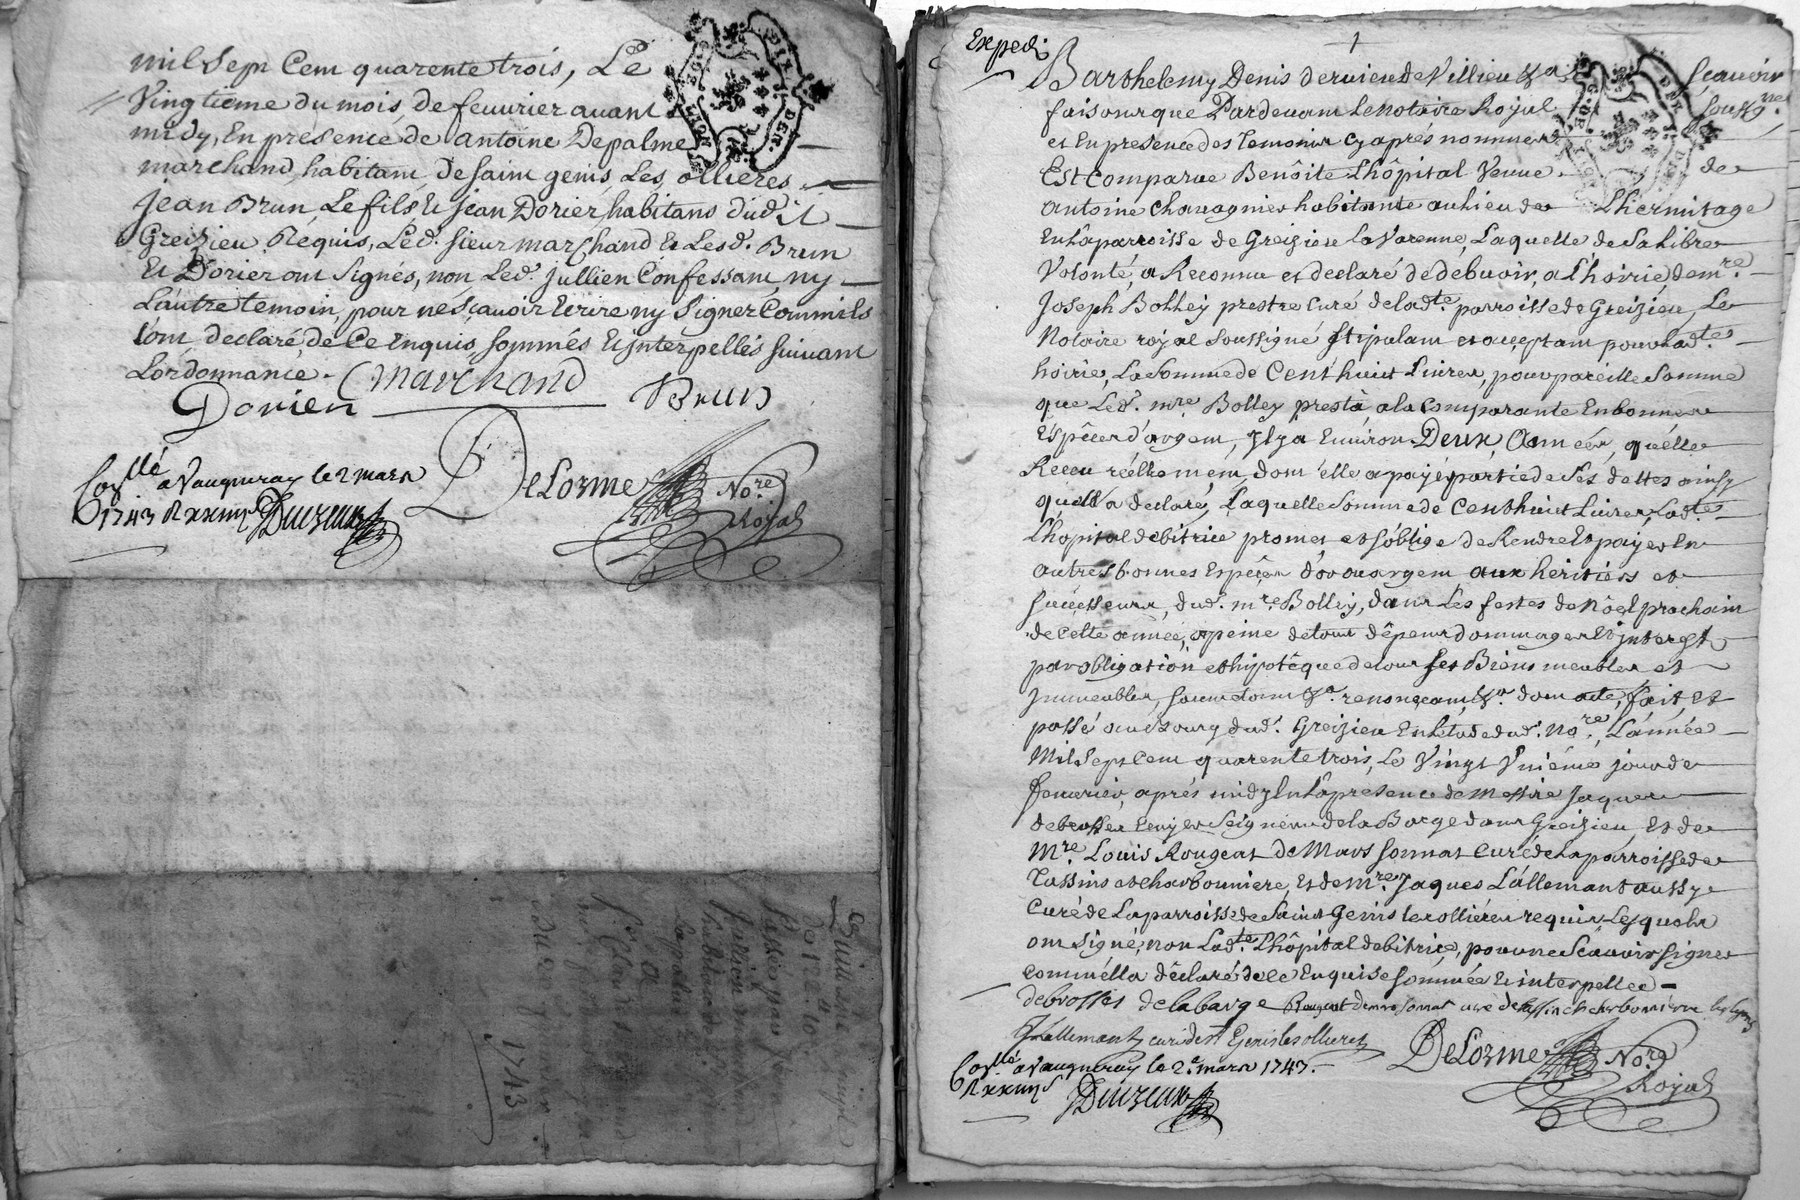 mil sept cent quarente trois, Le
Vingtieme du mois de feuurier auant
midy, En presence de antoine Depalme
marchand, habitant de saint genis Les ollieres
jean Brun Le fils & jean Dorier, habitans dudit
Greizieu Requis, Led. sieur marchand & Lesd. Brun
Et Dorier ont signés, non Led. jullien Confessant, ny
L'autre temoin, pour ne sçauoir Ecrire ny signer Comm'ils
ont declaré de Ce Enquis sommés & interpellés suiuant
Lordonnance.
Marchand
Dorier
Brun
DeLorme
No.re
Royal
Con.llé a Vaugneray le 2 mars
1743 R
1743
Expedi.
1
Barthelemy Denis deruieu de Villieu &a sçauoir
faisons que Pardeuant Le Notaire Royal souss.né
et En presence des temoins cy après nommés
Est Comparue Benôite L'hôpital Veuue de
antoine chauagnier habitante au lieu de L'hermitage
En La parroisse de Greizieu La Varenne, Laquelle de sa Libre
Volonté, a Reconnu et declaré de debuoir, a L'hoirie de m.re
Joseph Bolley prestre Curé de lad.te parroisse de Greizieu, Le
Notaire royal soussigné stipulant et acceptant pour lad.te
hoirie, La somme de Cent huict Liures, pour pareille somme
que Led. m.re Bolley prestà, a la Comparante En bonnes
Espêces d'argent, jl y a Enuiron Deux, Années, quélle
Receu réellement, dont elle a payé partie de ses dettes ainsy
quell'a declaré, Laquelle somme de Cent huict Liures, Lad.te
L'hopital debitrice promet et s'oblige de Rendre Et payer En
autres bonnes Espêces d'or ou argent aux heritiers et
successeurs, dud. m.re Bolley, dans Les festes de Nôel prochain
de cette année, a peine de tous dêpens dommages & interests
par obligation et hipotêque de tous ses Biens meubles et
jmmeubles, soumetant &a. renonçeant, &a. dont acte, fait, et
passé au Bourg dud. Greizieu En L'etude dud. No.re, L'année
Mil sept Cent quarente trois, Le Vingt Vnième jour de
feuurier, après midy En La presence de Messire Jaques
debrosses Ecuyer Seigneur de la Barge dans Greizieu, Et de
M.re Louis Rougeat de Marssonnat Curé de la parroisse de
Tassins et charbonniere, Et de m.re Jaques L'allemant aussy
Curé de La parroisse de Saint Genis les ollieres requis, Lesquels
ont signé, non Lad.te L'hôpital debitrice, pour ne sçauoir signer
Comm'élla dêclaré de Ce Enquise sommée & interpellée
debrosses delabarge Rougeat
Lallemant curé de st Genis les ollieres
DeLorme No.re
Royal
Con.llé a Vaugneray le 2.e mars 1743.
R